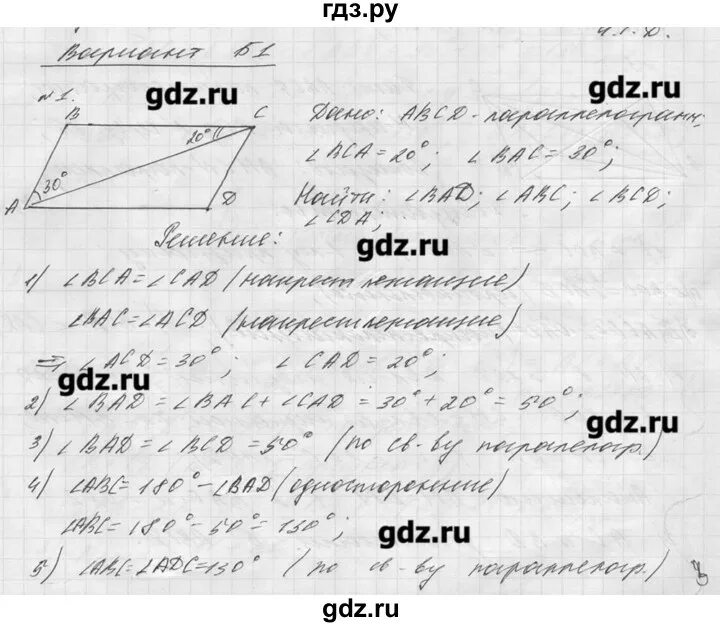 гдз.ру
ч.т.д.
Вариант Б1
№1.
gdz.ru
B
C
20°
30°
A
D
Дано: ABCD - параллелограмм;
∠BCA = 20°; ∠BAC = 30°;
Найти: ∠BAD; ∠ABC; ∠BCD;
∠CDA;
gdz.ru
Решение:
1) ∠BCA = ∠CAD (накрест лежащие)
∠BAC = ∠ACD (накрест лежащие)
⇒ ∠ACD = 30°; ∠CAD = 20°;
gdz.ru
2) ∠BAD = ∠BAC + ∠CAD = 30° + 20° = 50°;
gdz.ru
3) ∠BAD = ∠BCD = 50° (по св-ву параллелогр.)
4) ∠ABC = 180° - ∠BAD (односторонние)
∠ABC = 180° - 50° = 130°;
gdz.ru
5) ∠ABC = ∠ADC = 130° (по св-ву параллелогр.)
gdz.ru